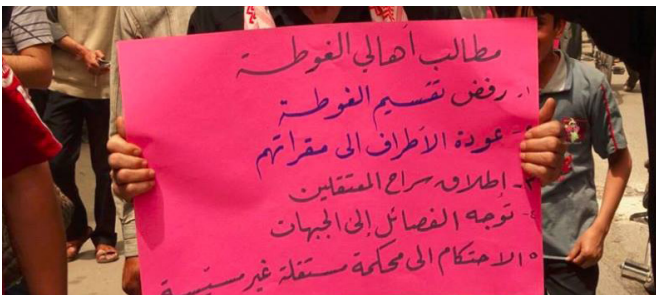 مطالب أهالي الغوطة
١- رفض تقسيم الغوطة
٢- عودة الأطراف الى مقراتهم
٣- إطلاق سراح المعتقلين
٤- توجه الفصائل إلى الجبهات
٥- الاحتكام الى محكمة مستقلة غير مسيسة